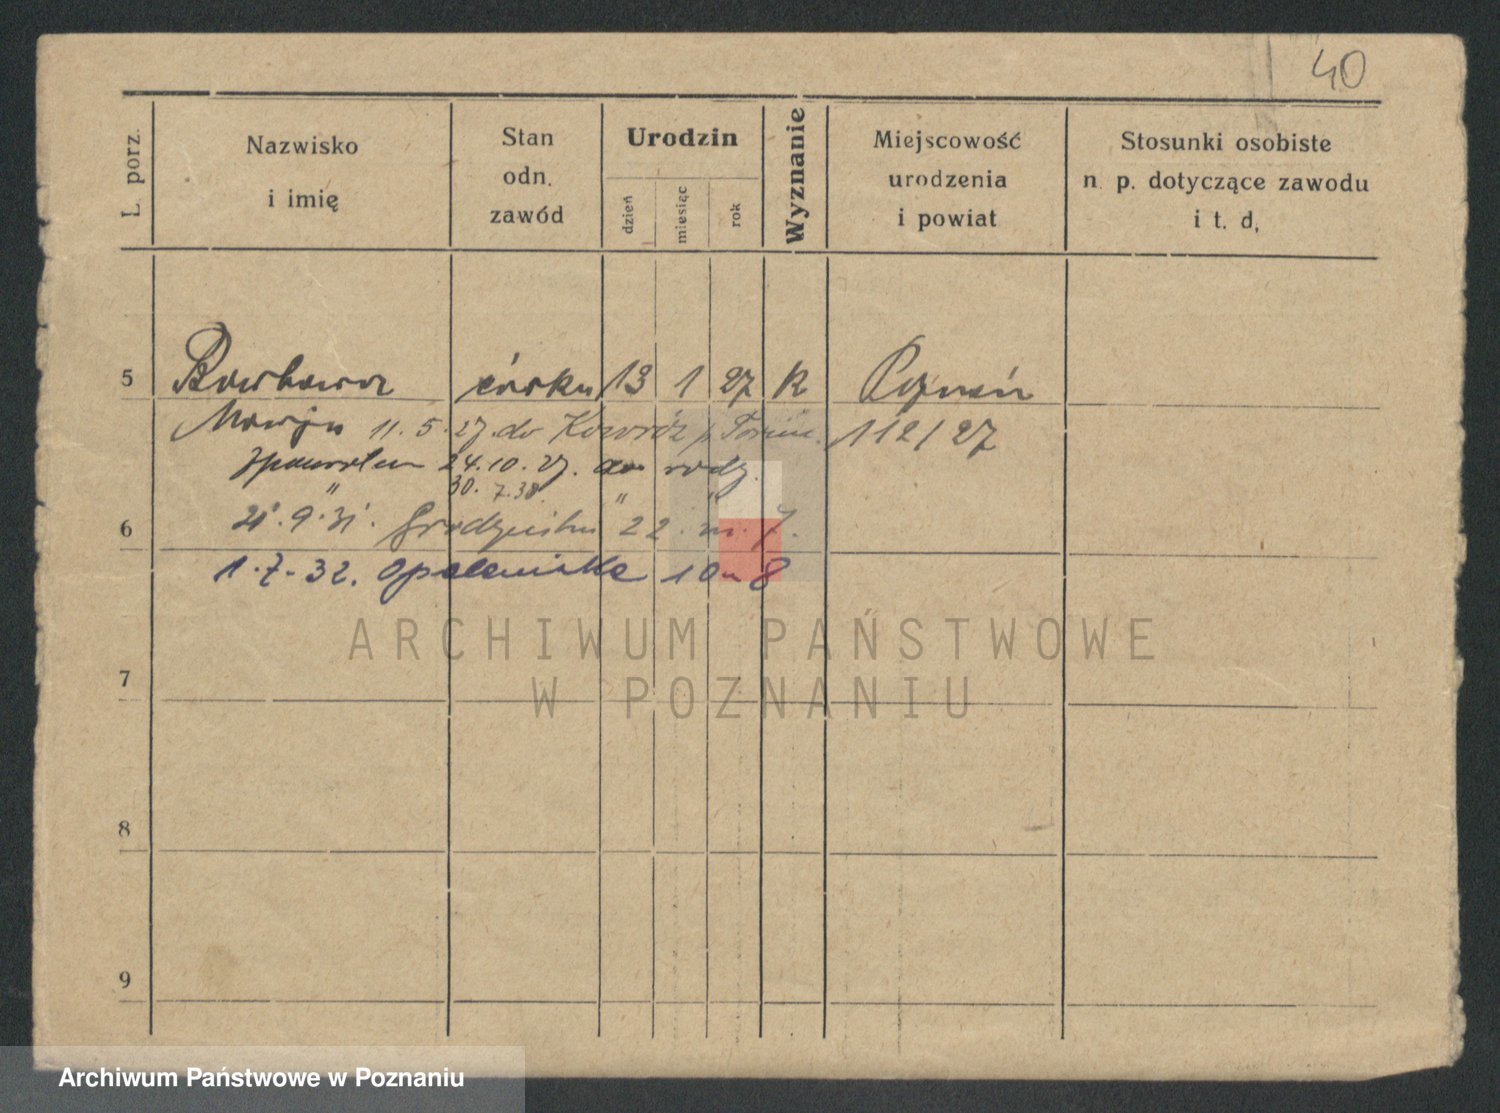 40
L. porz.
Nazwisko
i imię
Stan
odn.
zawód
Urodzin
dzień
miesiąc
rok
Wyznanie
Miejscowość
urodzenia
i powiat
Stosunki osobiste
n. p. dotyczące zawodu
i t. d,
5 Barbara córka 13 1 27 K Poznań
Marja 11.5.27. do 112/27
24.10.27. do rodz.
" 30.7.38. " "
6 21.9.31. 22 m. 7.
1.7.32. Opalenicka 10 m 8
ARCHIWUM PAŃSTWOWE
W POZNANIU
7
8
9
Archiwum Państwowe w Poznaniu